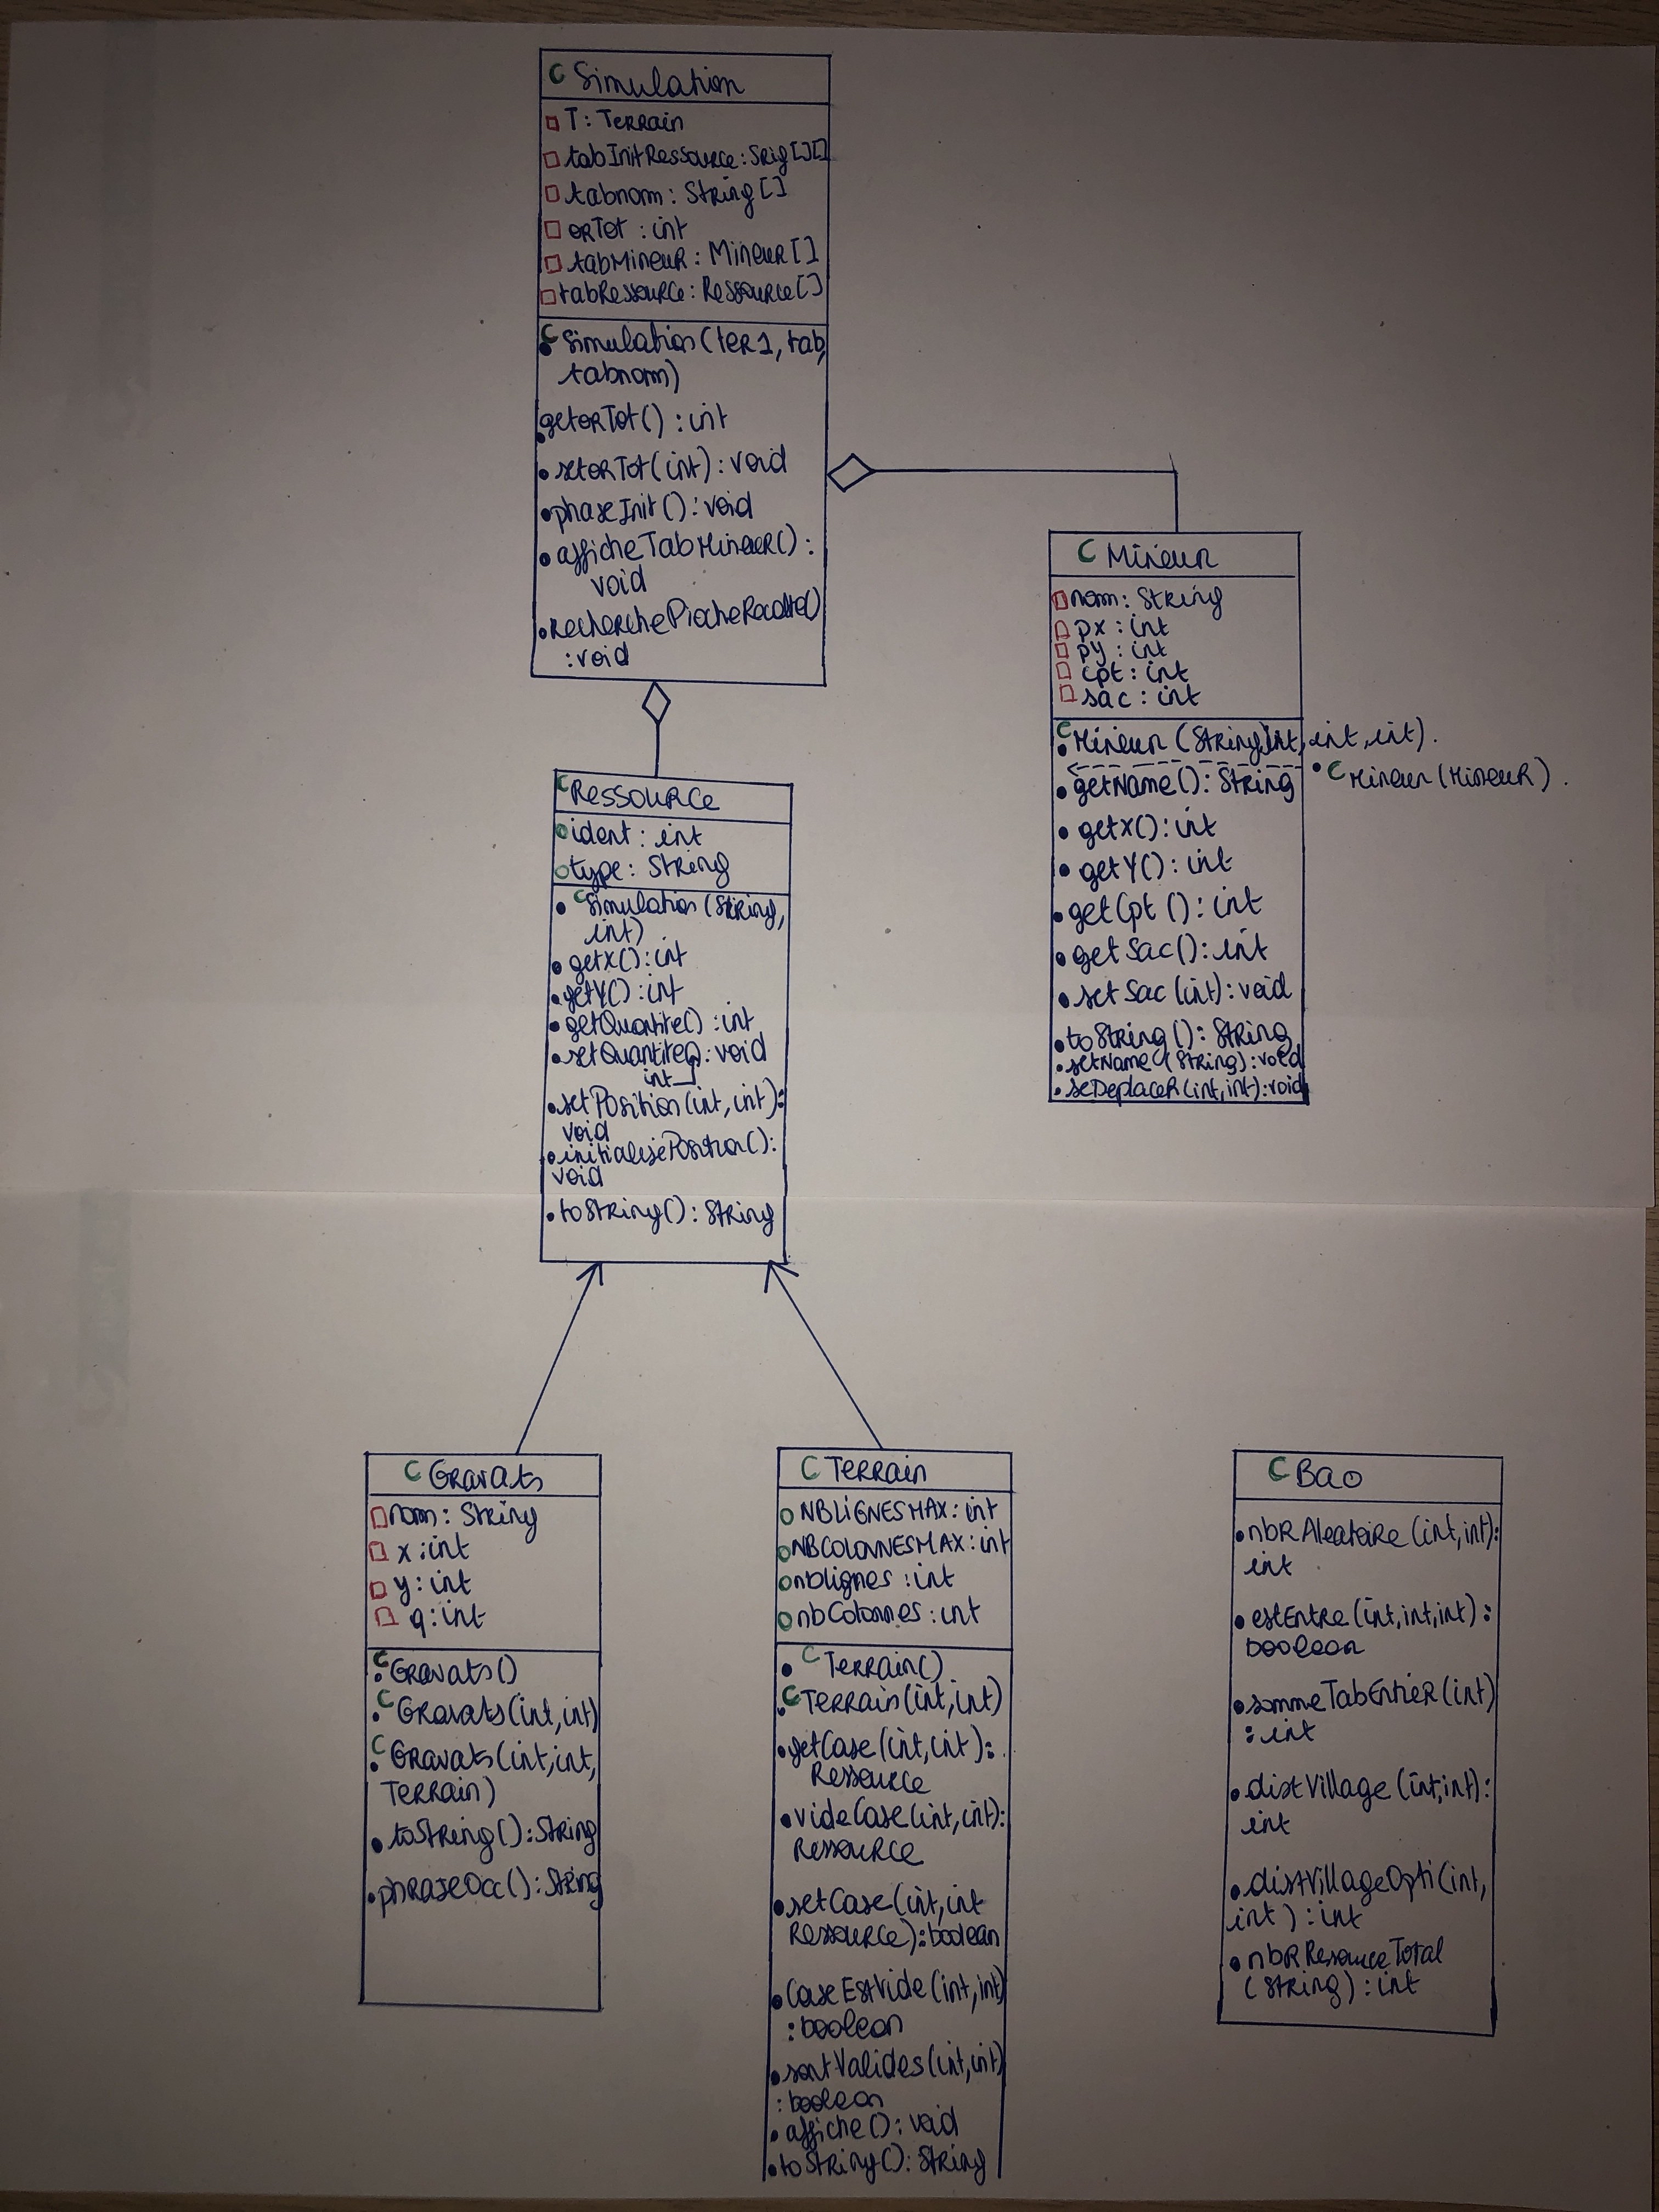 C Simulation
T: Terrain
tabInitRessource: Srig[][]
tabnom: String[]
orTot: int
tabMineur: Mineur[]
tabRessource: Ressource[]
C Simulation(ter1, tab,
tabnom)
getorTot(): int
setorTot(int): void
phaseInit(): void
afficheTabMineur():
void
recherchePiocheRecolte()
:void
C Mineur
nom: String
px: int
py: int
cpt: int
sac: int
C Mineur (String, int, int, int).
C Mineur (Mineur).
getName(): String
getX(): int
getY(): int
getCpt(): int
getSac(): int
setSac(int): void
toString(): String
setName(String): void
seDeplacer(int, int): void
C Ressource
ident: int
type: String
C Simulation(String,
int)
getX(): int
getY(): int
getQuantite(): int
setQuantite(): void
int
setPosition(int, int):
void
initialisePosition():
void
toString(): String
C Gravats
nom: String
x: int
y: int
q: int
C Gravats()
C Gravats(int, int)
C Gravats(int, int,
Terrain)
toString(): String
phraseOcc(): String
C Terrain
NBLIGNESMAX: int
NBCOLONNESMAX: int
nblignes: int
nbColonnes: int
C Terrain()
C Terrain(int, int)
getCase(int, int):
Ressource
videCase(int, int):
Ressource
setCase(int, int
Ressource): boolean
CaseEstVide(int, int)
: boolean
sontValides(int, int)
: boolean
affiche(): void
toString(): String
C Bao
nbrAleatoire(int, int):
int
estEntre(int, int, int):
boolean
sommeTabEntier(int)
: int
distVillage(int, int):
int
distVillageOpti(int,
int): int
nbrResourceTotal
(String): int